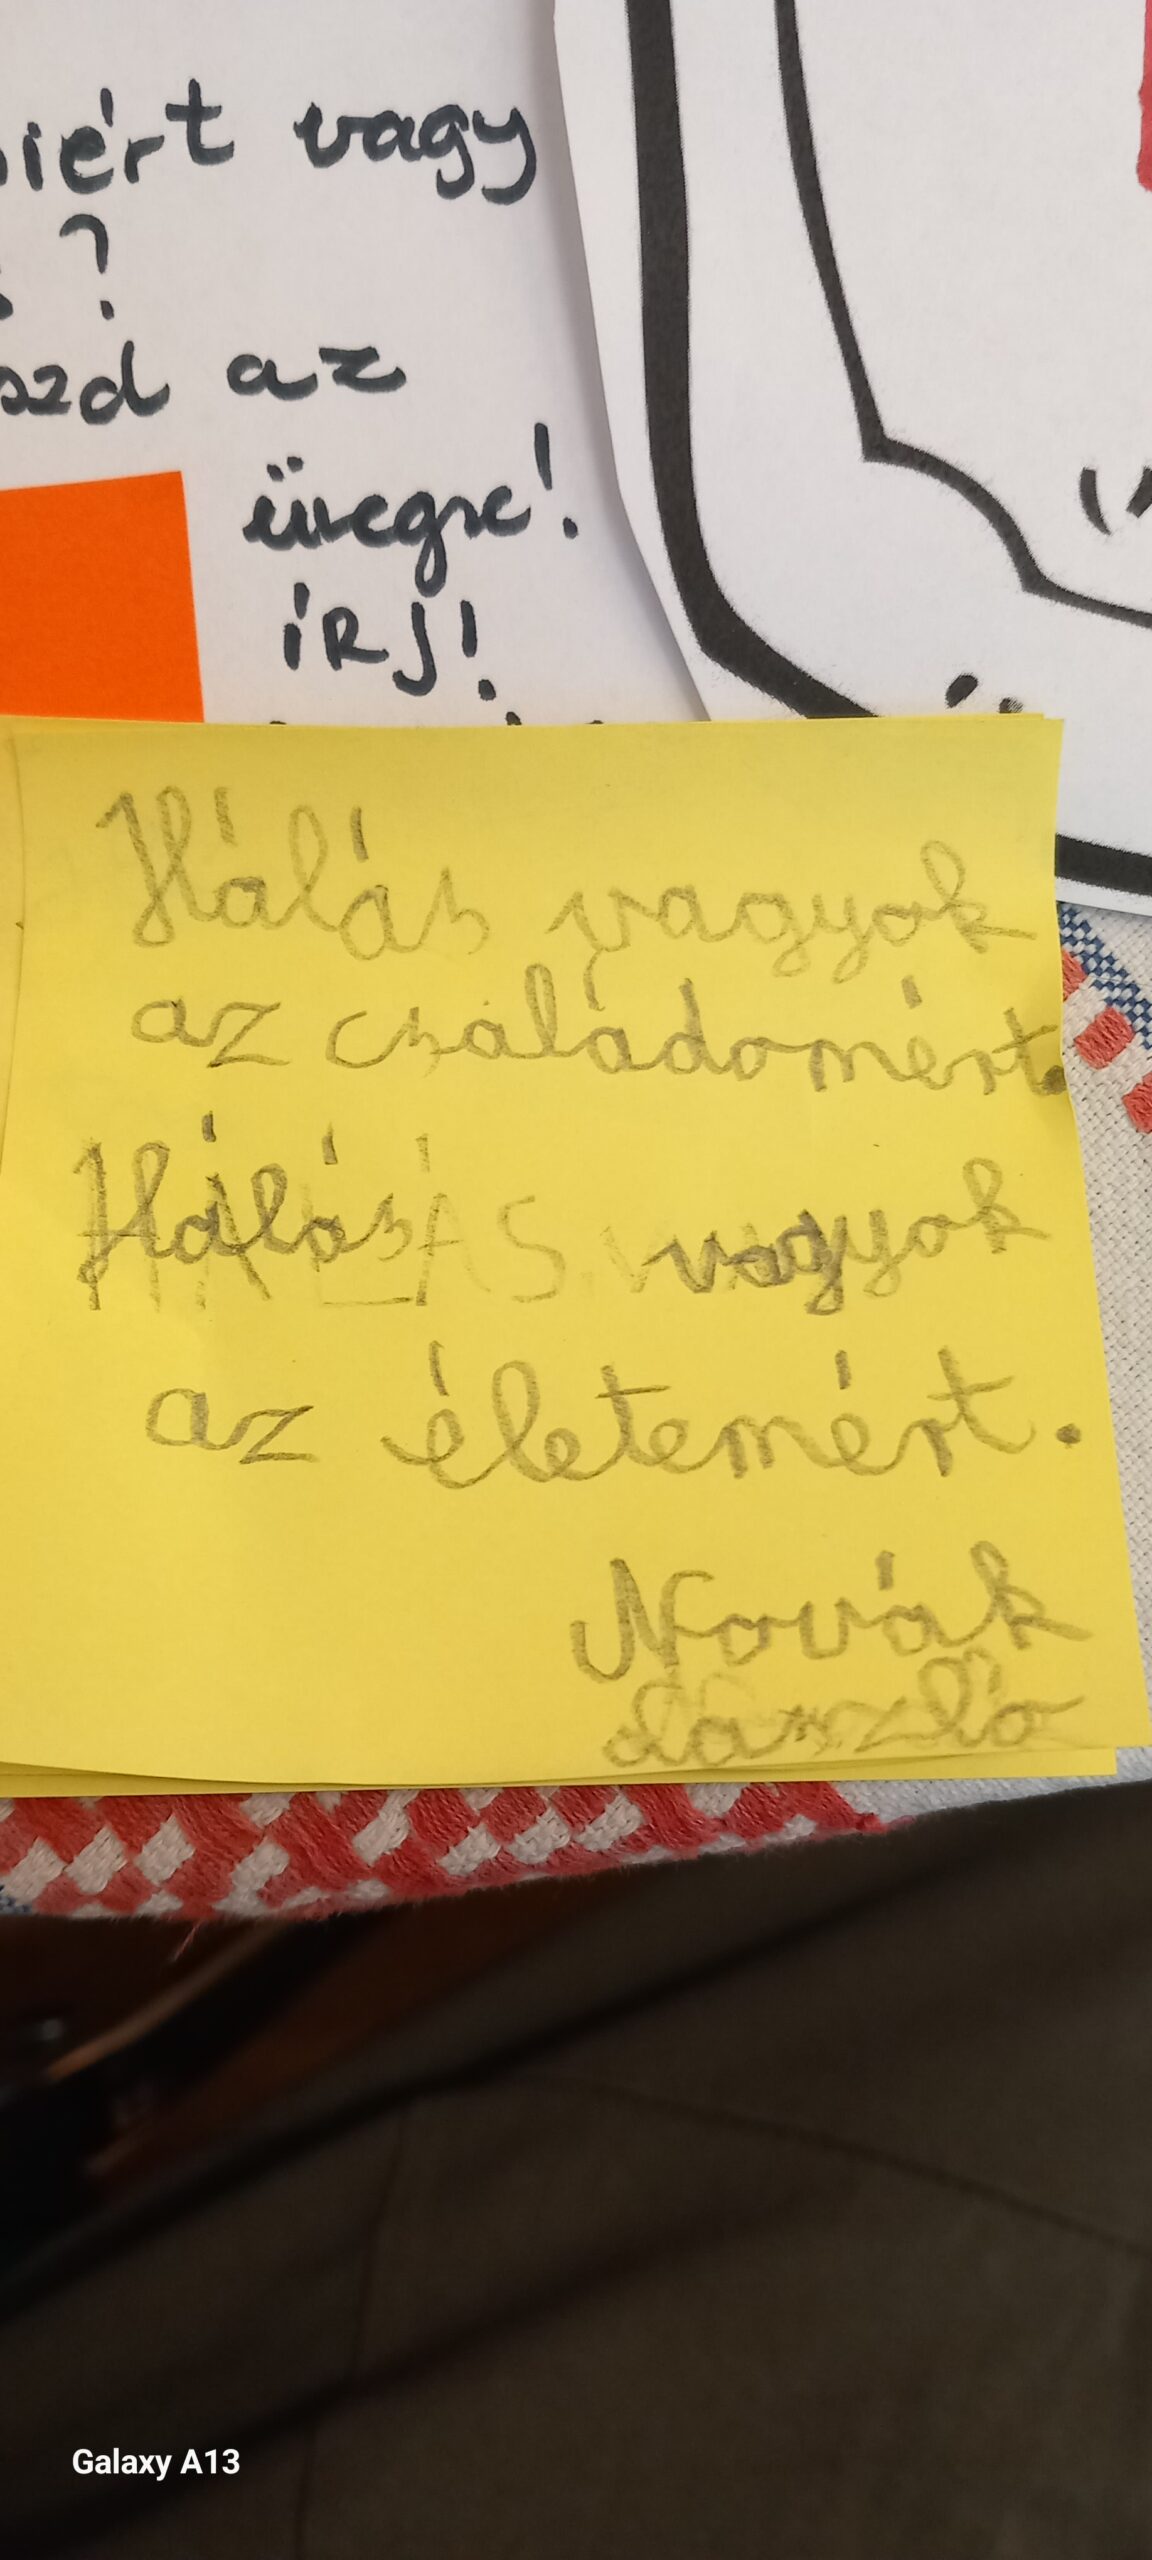 miért vagy
?
az
üvegre!
ÍRJ!
Hálás vagyok
az családomért.
Hálás vagyok
az életemért.
Novák
László
Galaxy A13